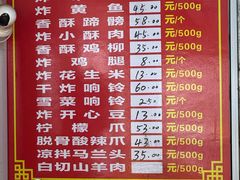 炸黄鱼 45.00 元/500g
香酥蹄髈 58.00 元/个
炸小酥肉 45.00 元/500g
香酥鸡柳 35.00 元/500g
炸花生米 13.00 元/500g
干炸响铃 60.00 元/500g
雪菜响铃 25.0 元/个
炸开心豆 13.0 元/500g
柠檬爪 53.00 元/500g
脱骨酸辣爪 43.00 元/500g
凉拌马兰头 35.00 元/500g
白切山羊肉 元/500g